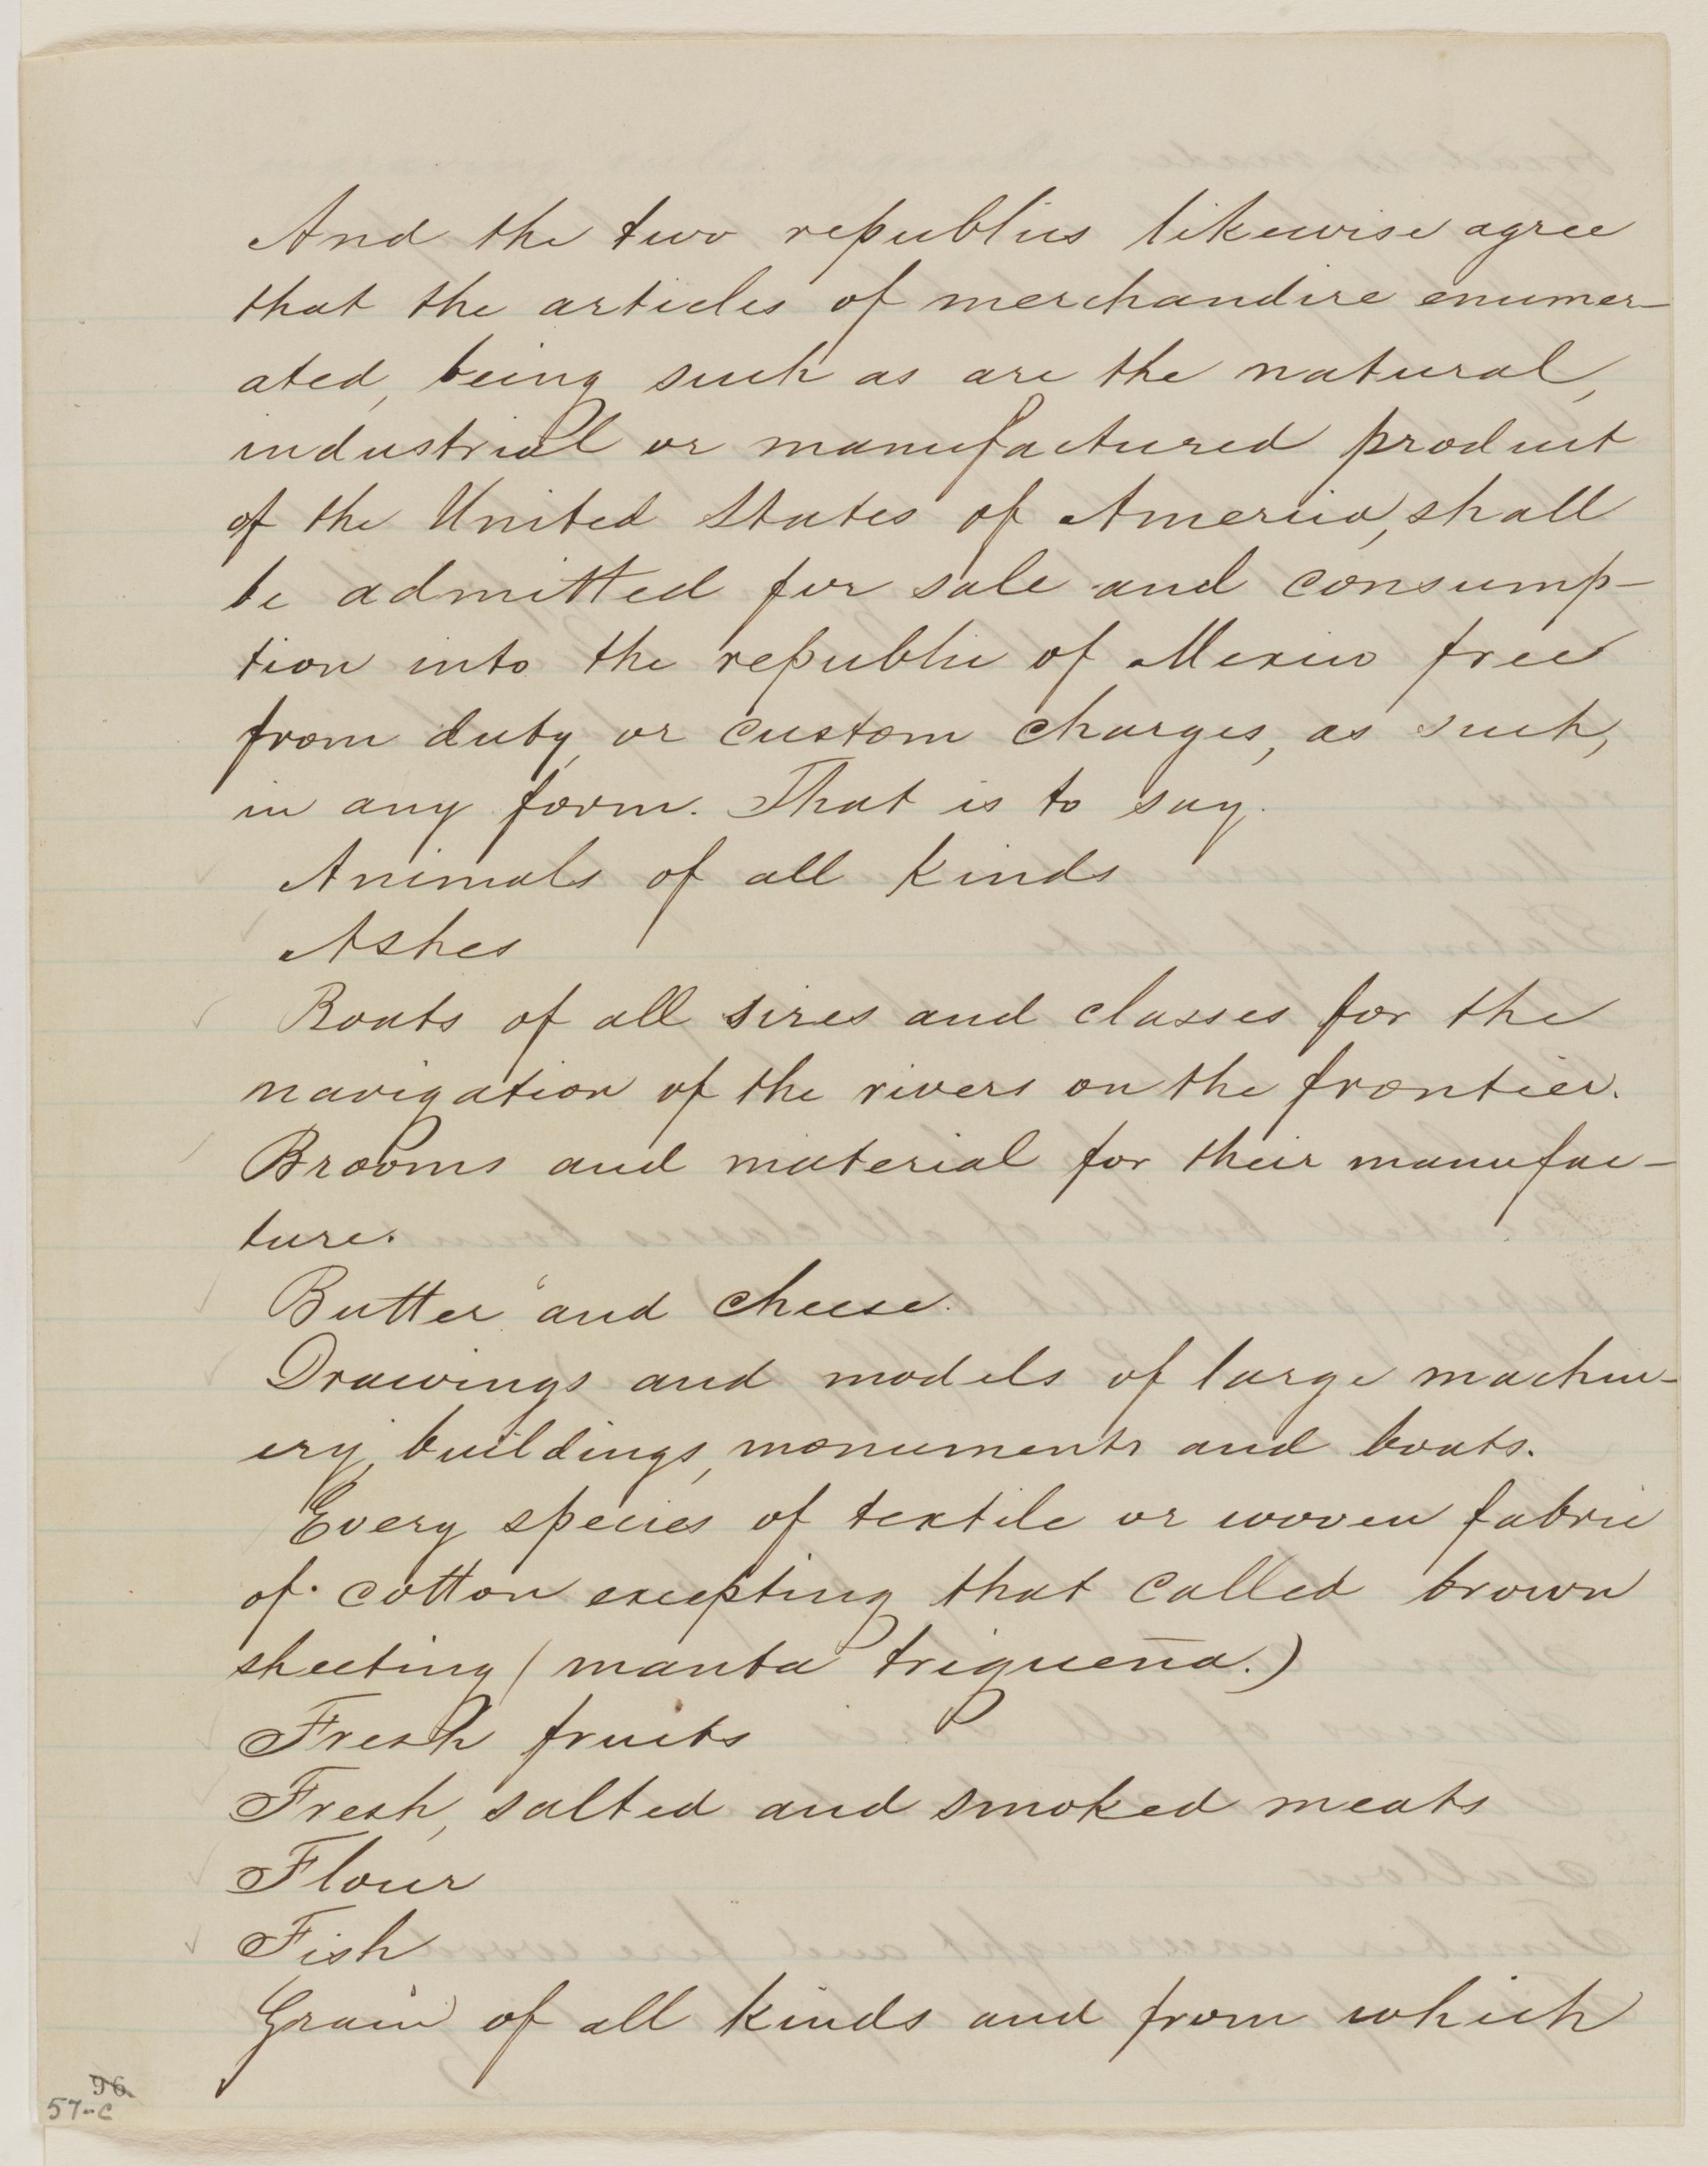 And the two republics likewise agree
that the articles of merchandise enumer-
ated, being such as are the natural,
industrial or manufactured product
of the United States of America, shall
be admitted for sale and consump-
tion into the republic of Mexico free
from duty, or custom charges, as such,
in any form. That is to say.
Animals of all kinds
Ashes
Boats of all sizes and classes for the
navigation of the rivers on the frontier.
Brooms and material for their manufac-
ture.
Butter and cheese.
Drawings and models of large machin-
ery, buildings, monuments and boats.
Every species of textile or woven fabric
of cotton excepting that called brown
sheeting (manta trigueña.)
Fresh fruits
Fresh, salted and smoked meats
Flour
Fish
Grain of all kinds and from which
96
57-C